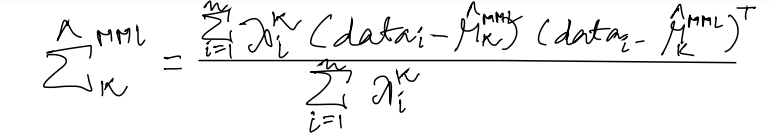 $\hat{\Sigma}_K^{MML} = \frac{\sum_{i=1}^{n} \lambda_i^K (data_i - \hat{\mu}_K^{MML}) (data_i - \hat{\mu}_K^{MML})^T}{\sum_{i=1}^{n} \lambda_i^K}$